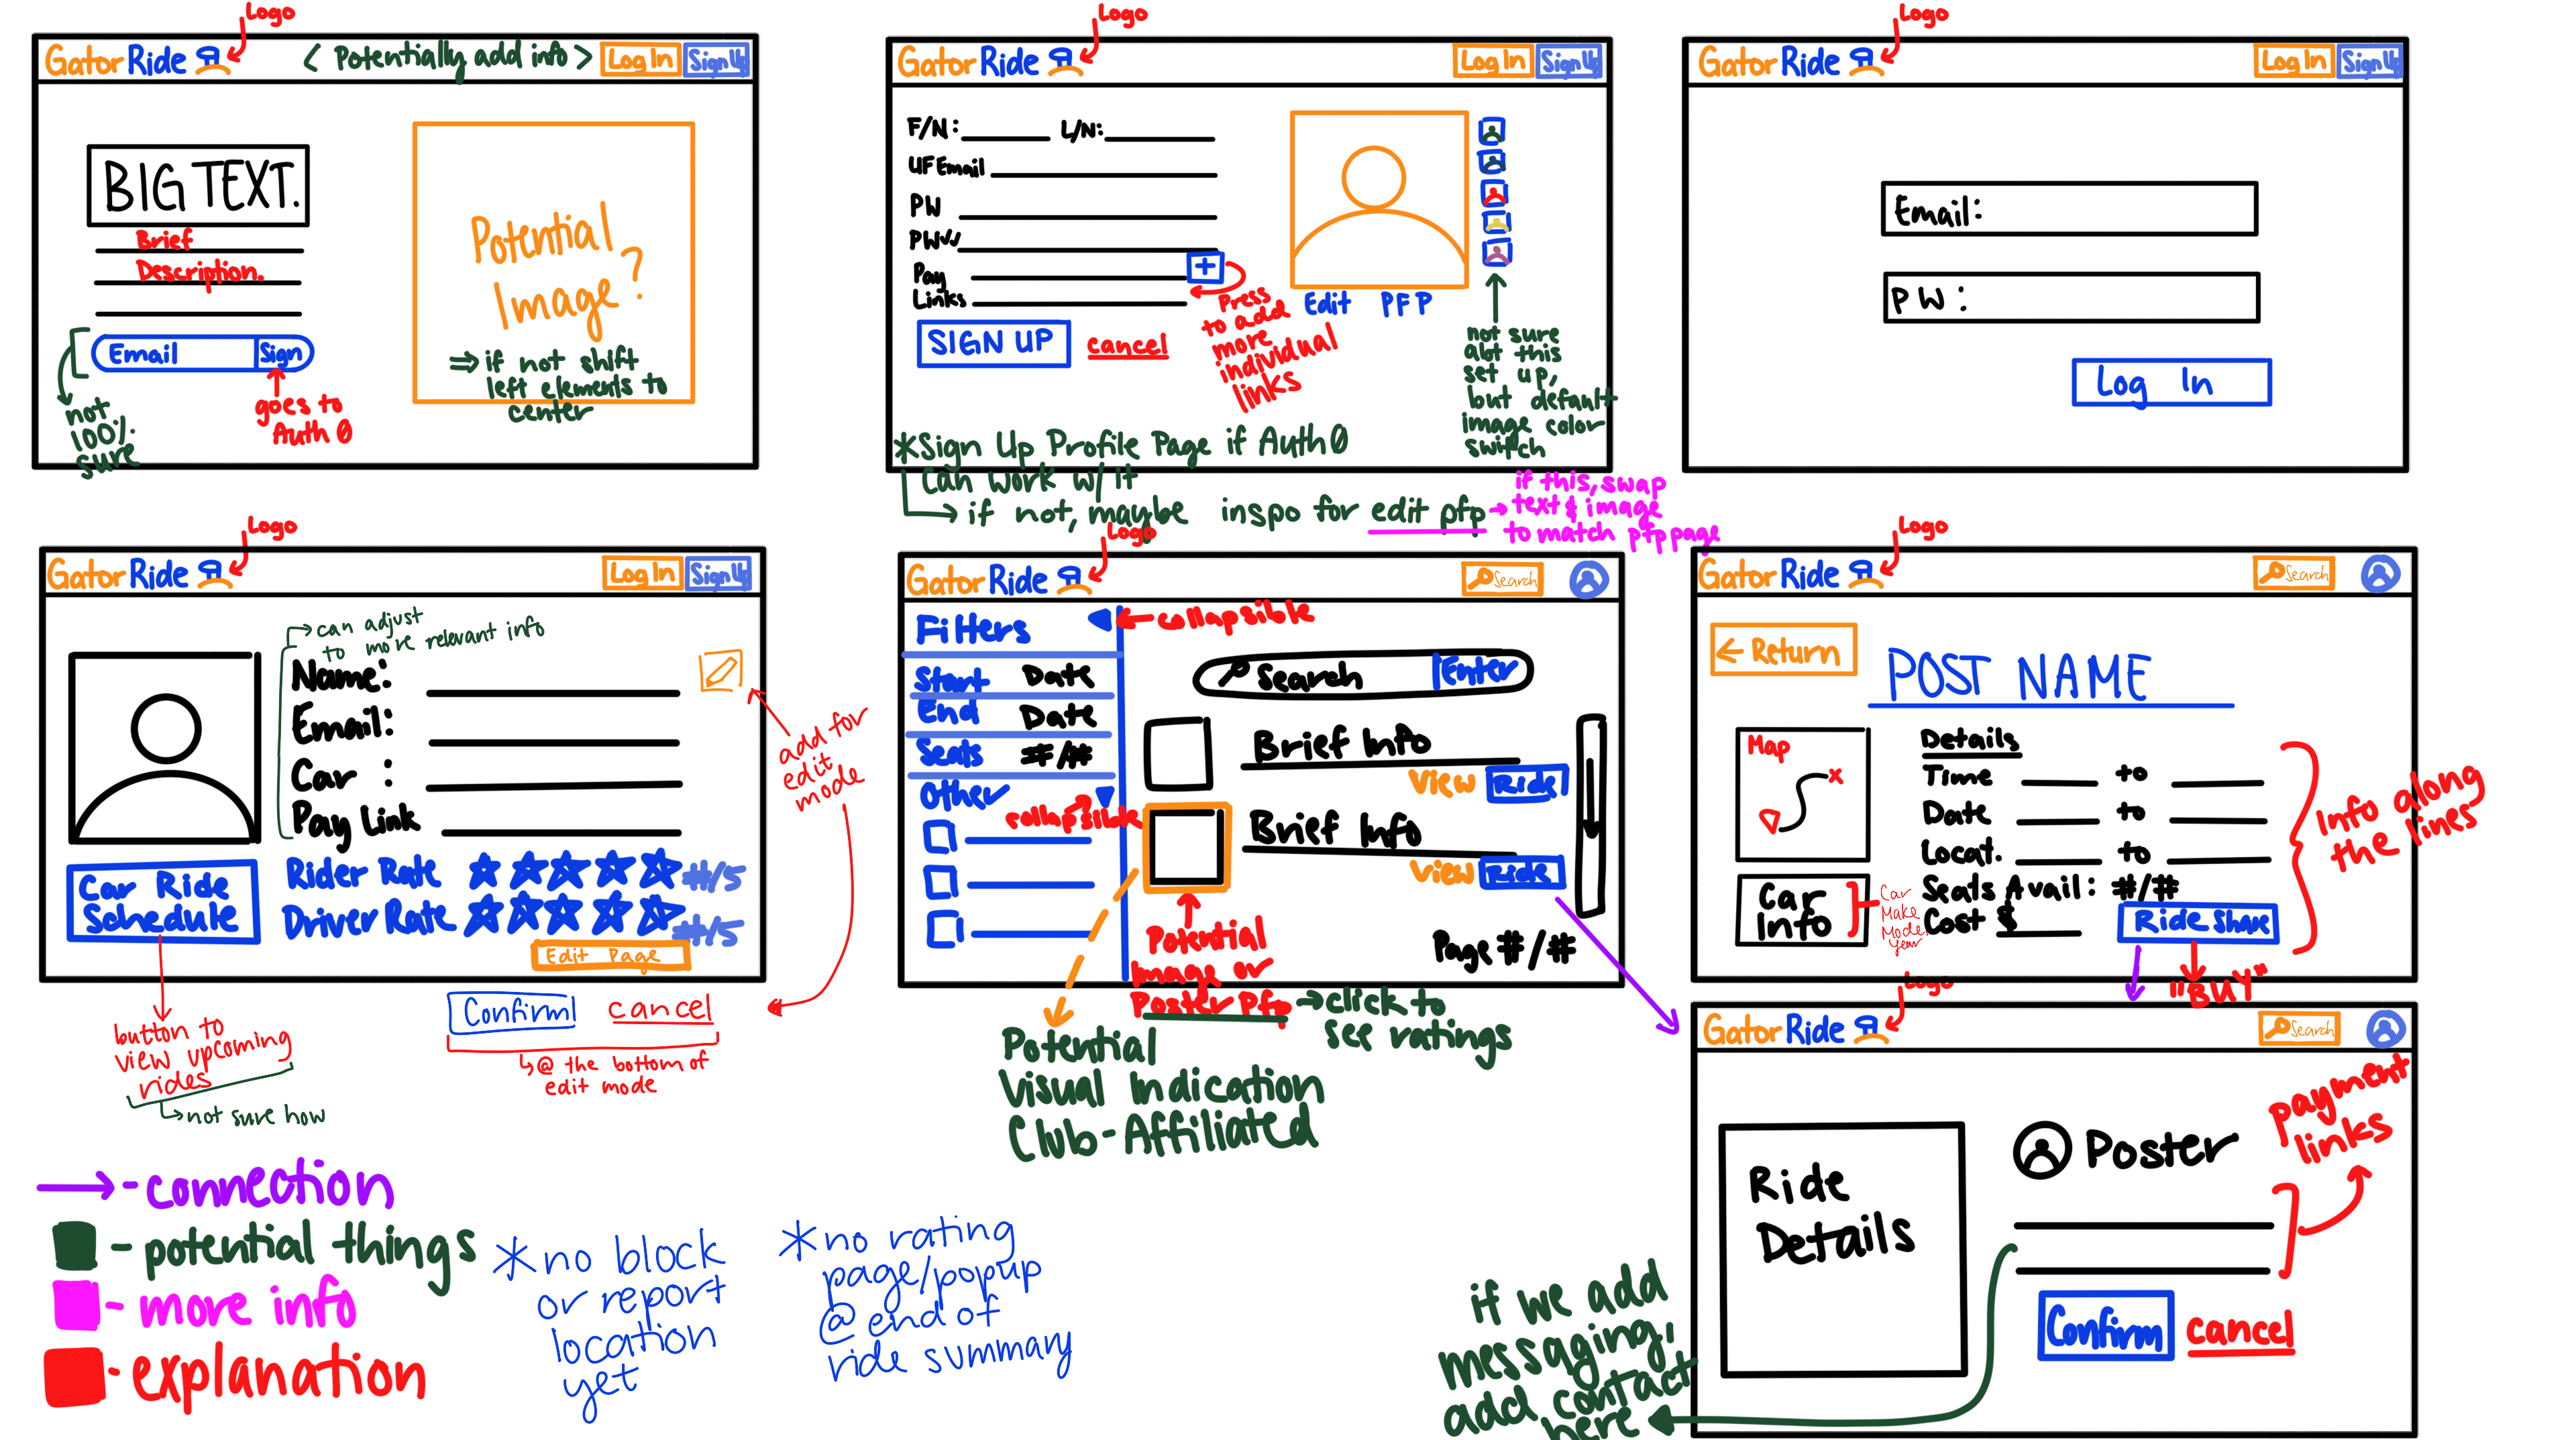 Logo
GatorRide
< Potentially add info >
Log In
Sign Up
BIG TEXT.
Brief
Description.
Email
Sign
not
100%
sure
goes to
Auth 0
Potential
Image?
⇒ if not shift
left elements to
center
Logo
GatorRide
Log In
Sign Up
F/N:
L/N:
UF Email
PW
PW✓✓
Pay
Links
+
Press
to add
more
individual
links
SIGN UP
cancel
Edit PFP
not sure
abt this
set up,
but default
image color
switch
*Sign Up Profile Page if Auth0
can work w/ it
→ if not, maybe inspo for edit pfp
→ if this, swap
text & image
to match pfp page
Logo
GatorRide
Log In
Sign Up
Email:
PW:
Log In
Logo
GatorRide
Log In
Sign Up
→ can adjust
to more relevant info
Name:
Email:
Car :
Pay Link
Car Ride
Schedule
Rider Rate
#/5
Driver Rate
#/5
Edit Page
add for
edit
mode
Confirm
cancel
↳ @ the bottom of
edit mode
button to
view upcoming
rides
→ not sure how
Logo
GatorRide
Search
Filters
← collapsible
Start Date
End Date
Seats #/#
Other
collapsible
Search
Enter
Brief Info
View
Ride
Brief Info
View
Ride
Page #/#
Potential
Image or
Poster Pfp
→ click to
see ratings
Potential
Visual Indication
Club-Affiliated
Logo
GatorRide
Search
← Return
POST NAME
Map
x
Car
Info
Car
Make
Model
Year
Details
Time
to
Date
to
Locat.
to
Seats Avail: #/#
Cost $
Ride Share
"BUY"
Info along
the lines
Logo
GatorRide
Search
Ride
Details
Poster
payment
links
Confirm
cancel
if we add
messaging,
add contact
here
→ - connection
- potential things
- more info
- explanation
*no block
or report
location
yet
*no rating
page/popup
@ end of
ride summary